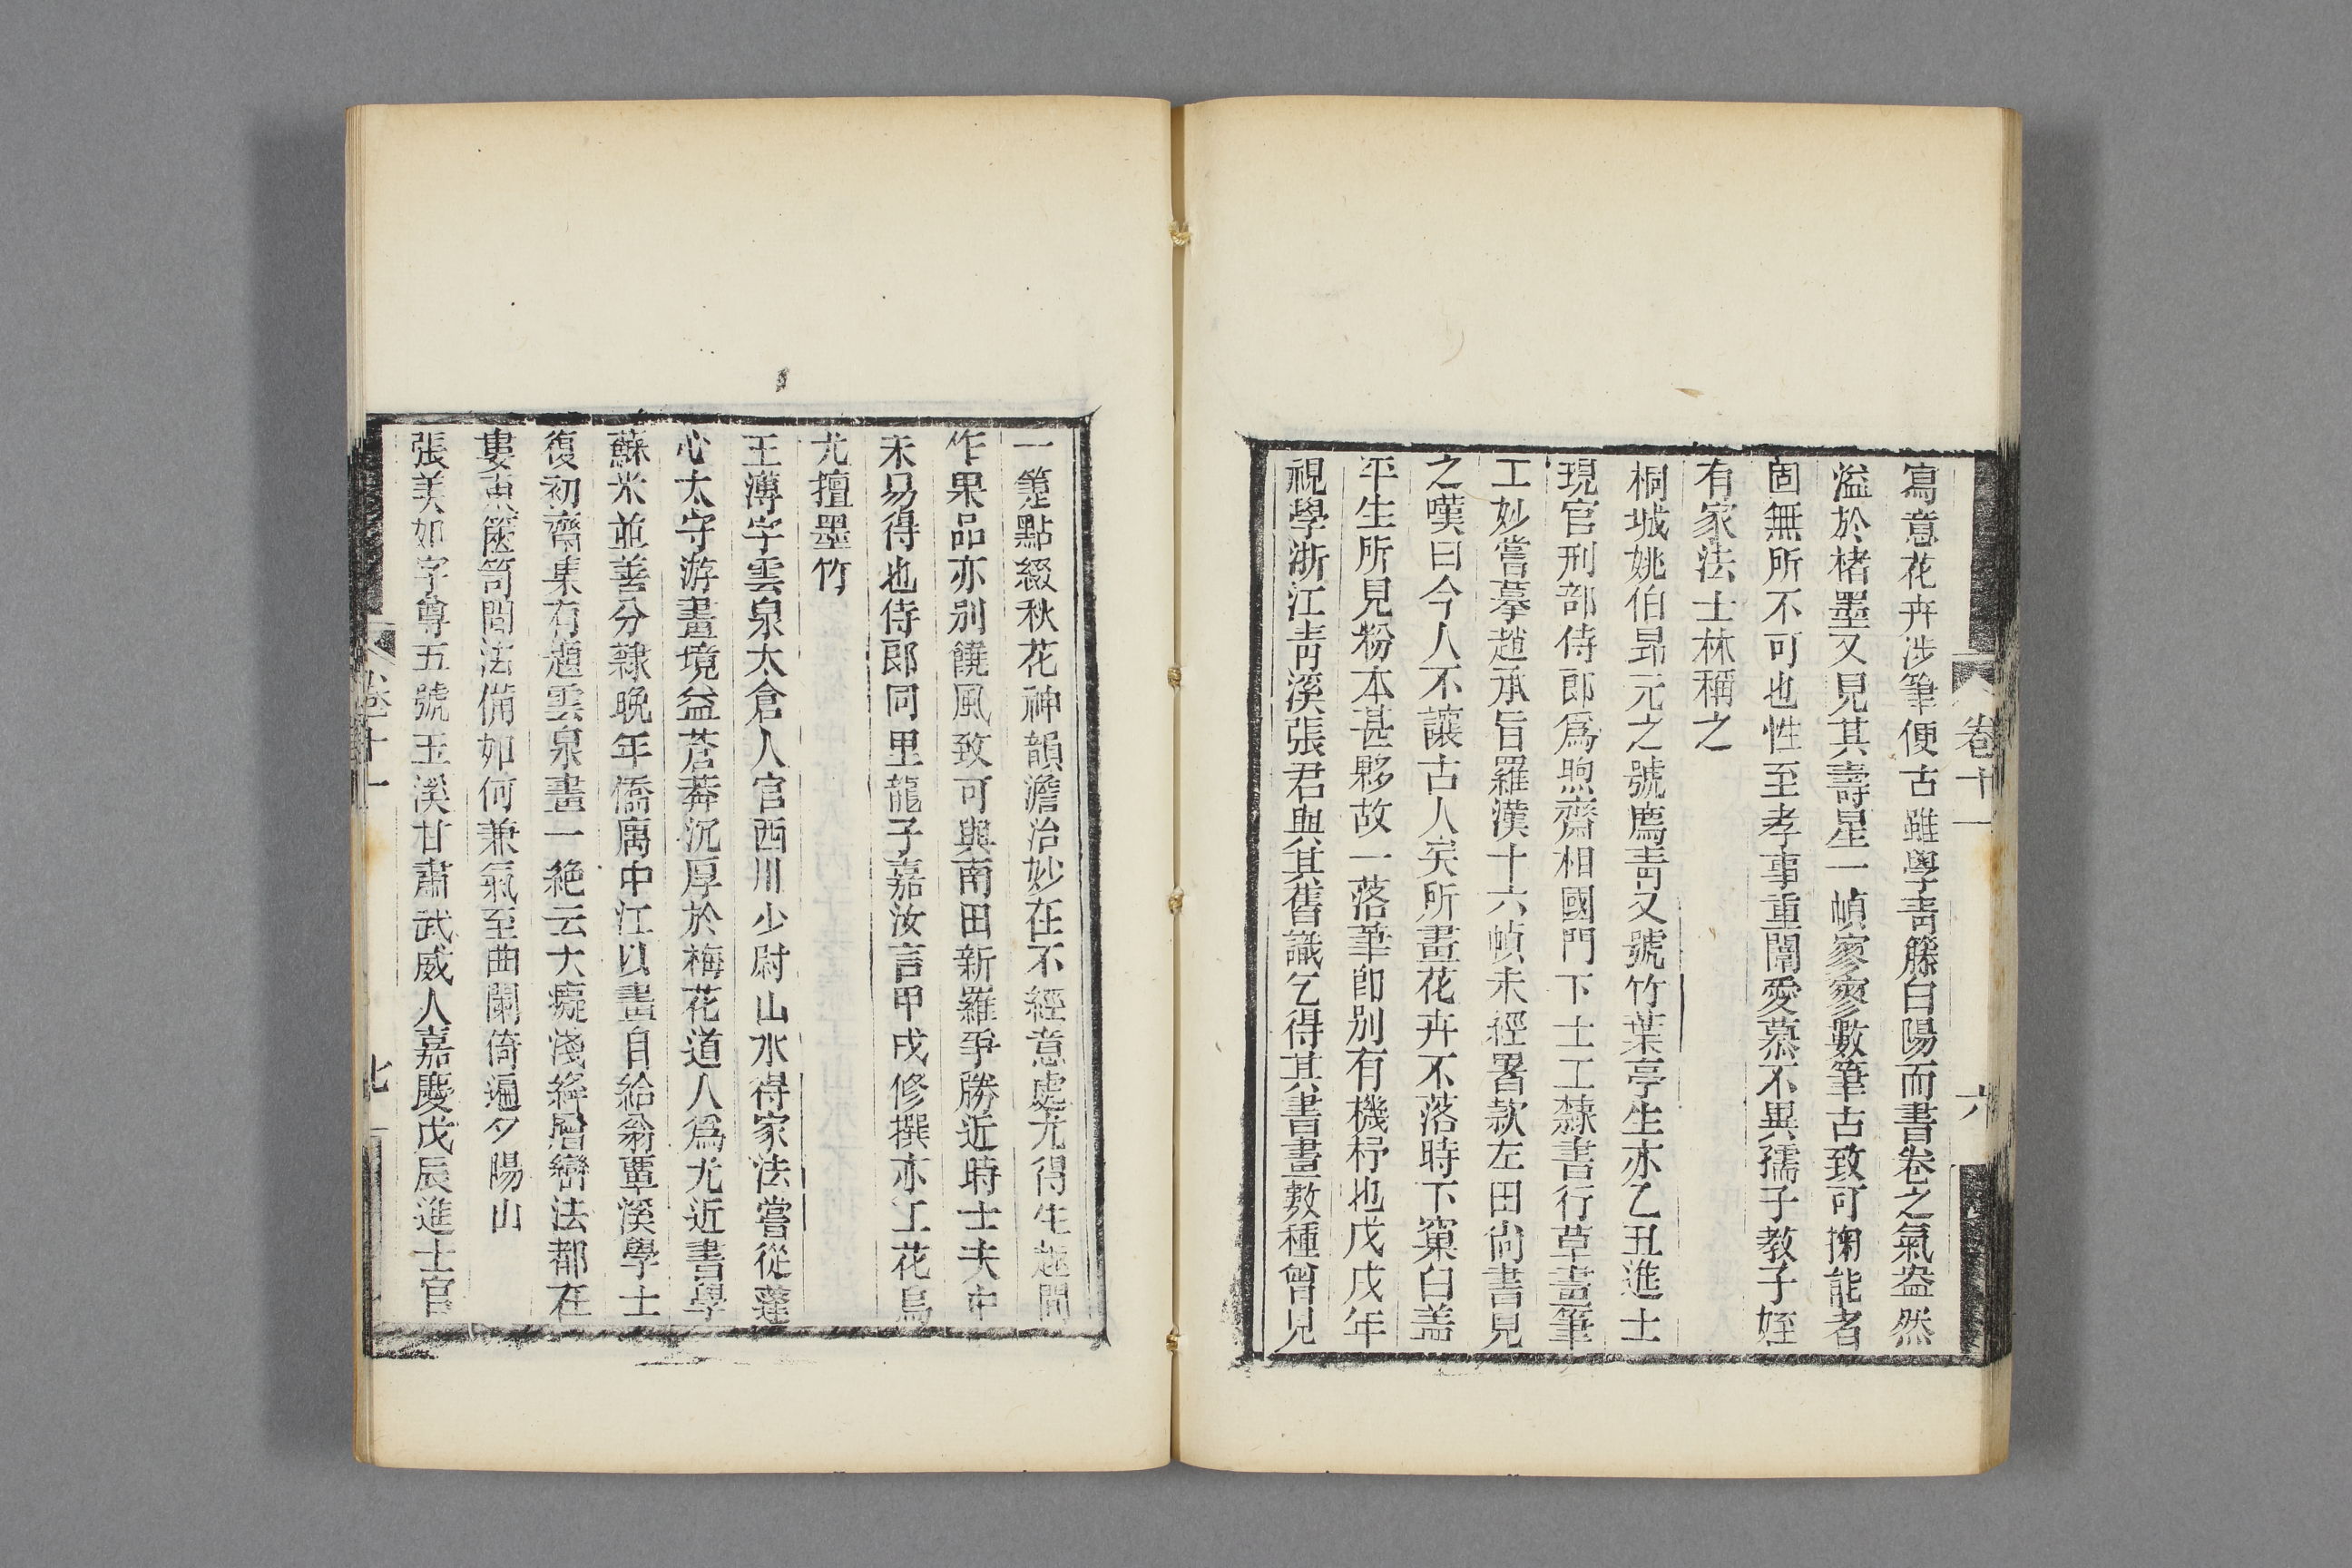 卷十一
六
寫意花卉涉筆便古雖學靑籐白陽而書卷之氣盎然
溢於楮墨又見其壽星一幀寥寥數筆古致可掬能者
固無所不可也性至孝事重闈愛慕不異孺子教子姪
有家法士林稱之
桐城姚伯昻元之號廌靑又號竹葉亭生亦乙丑進士
現官刑部侍郎爲煦齋相國門下士工隸書行草畫筆
工妙嘗摹趙承旨羅漢十六幀未經署款左田尙書見
之嘆曰今人不讓古人矣所畫花卉不落時下窠臼盖
平生所見粉本甚夥故一落筆卽別有機杼也戊戌年
視學浙江靑溪張君與其舊識乞得其書畫數種曾見
一箑點綴秋花神韻澹冶妙在不經意處尤得生趣間
作果品亦別饒風致可與南田新羅爭勝近時士夫中
未易得也侍郎同里龍子嘉汝言甲戌修撰亦工花鳥
尤擅墨竹
王薄字雲泉太倉人官西川少尉山水得家法嘗從蓬
心太守游畫境益蒼莽沉厚於梅花道人爲尤近書學
蘇米並善分隸晚年僑寓中江以畫自給翁覃溪學士
復初齋集有題雲泉畫一絶云大癡淺絳層巒法都在
婁東篋笥間法備如何兼氣至曲闌倚遍夕陽山
張美如字尊五號玉溪甘肅武威人嘉慶戊辰進士官
卷十一
七